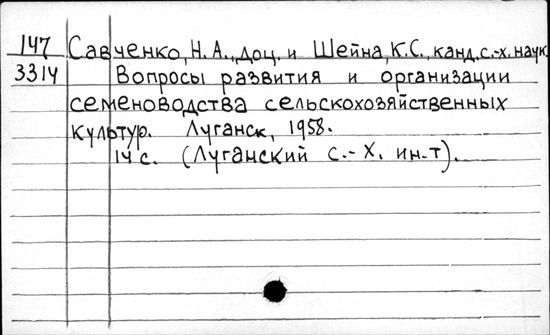 147 Савченко, Н. А., доц. и Шейна, К.С., канд. с.-х. наук.
3314 Вопросы развития и организации
семеноводства сельскохозяйственных
культур. Луганск, 1958.
14 с. (Луганский с.-х. ин-т).